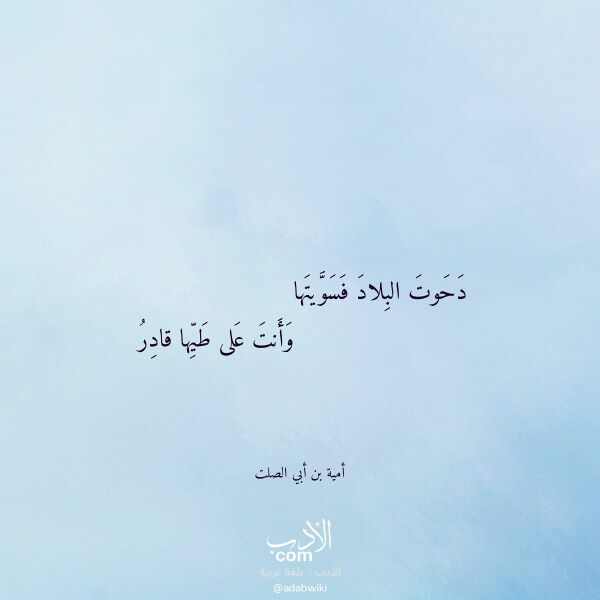 دَحَوتَ البِلادَ فَسَوَّيتَها
وَأَنتَ عَلى طَيِّها قادِرُ
أمية بن أبي الصلت
الأدب
com
الأدب .. بلغة عربية
@adabwiki